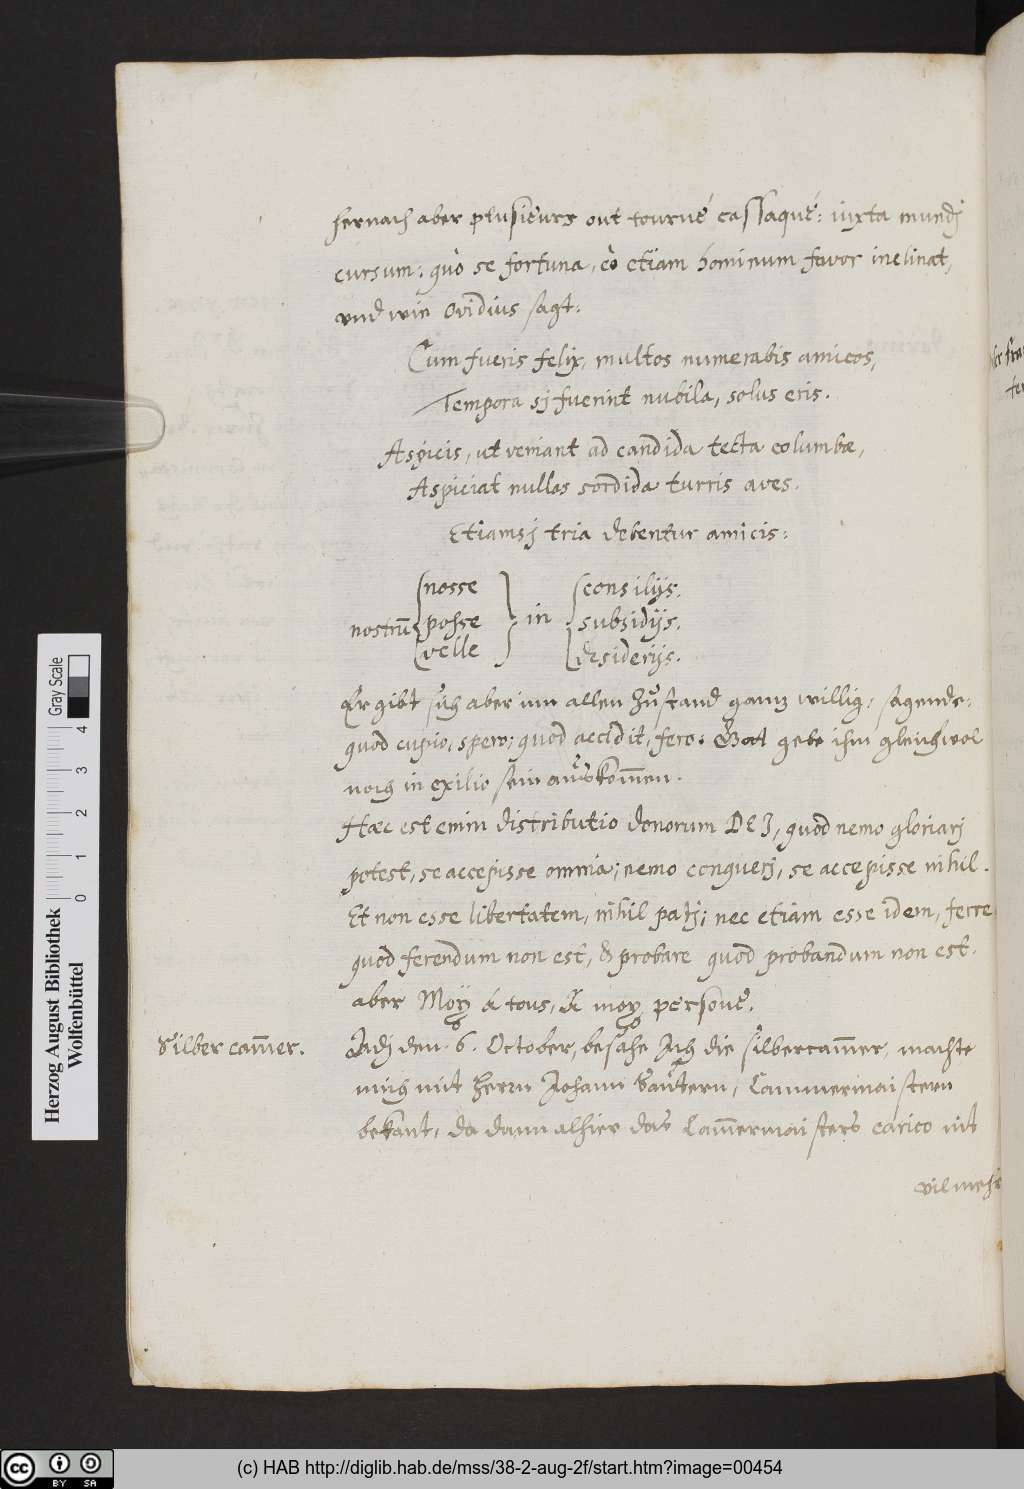 hernach aber plusieurs out tourné cassaqué: iuxta mundj
cursum: quò se fortuna, eò etiam hominum favor inclinat,
vnd wie Ovidius sagt:
Cum fueris felix, multos numerabis amicos,
Tempora sj fuerint nubila, solus eris.
Aspicis, ut veniant ad candida tecta columbæ,
Aspiciat nullas sordida turris aves.
Etiamsj tria debentur amicis:
nosse
consilijs.
nostrū posse in subsidijs.
velle
desiderijs.
Er gibt sich aber inn allen Zustand gantz willig, sagende:
quod cupio, spero; quod accidit, fero. Gott gebe ihm gleichwol
noch in exilio sein auskom̄en.
Hæc est enim distributio donorum DEJ, quod nemo gloriarj
potest, se accepisse omnia; nemo conquerj, se accepisse nihil.
Et non esse libertatem, nihil patj; nec etiam esse idem, ferre
quod ferendum non est, & probare quod probandum non est.
aber Moy á tous, à moy persone.
Silber cam̄er.
Adj den 6. October, besahe Ich die silbercam̄er, machte
mich mit Herrn Johann Sautern, Cammermaistern
bekant, da dann alhier das Cam̄ermaisters carico nit
vil mehr
Herzog August Bibliothek
Wolfenbüttel
Gray Scale
0 1 2 3 4
(c) HAB http://diglib.hab.de/mss/38-2-aug-2f/start.htm?image=00454